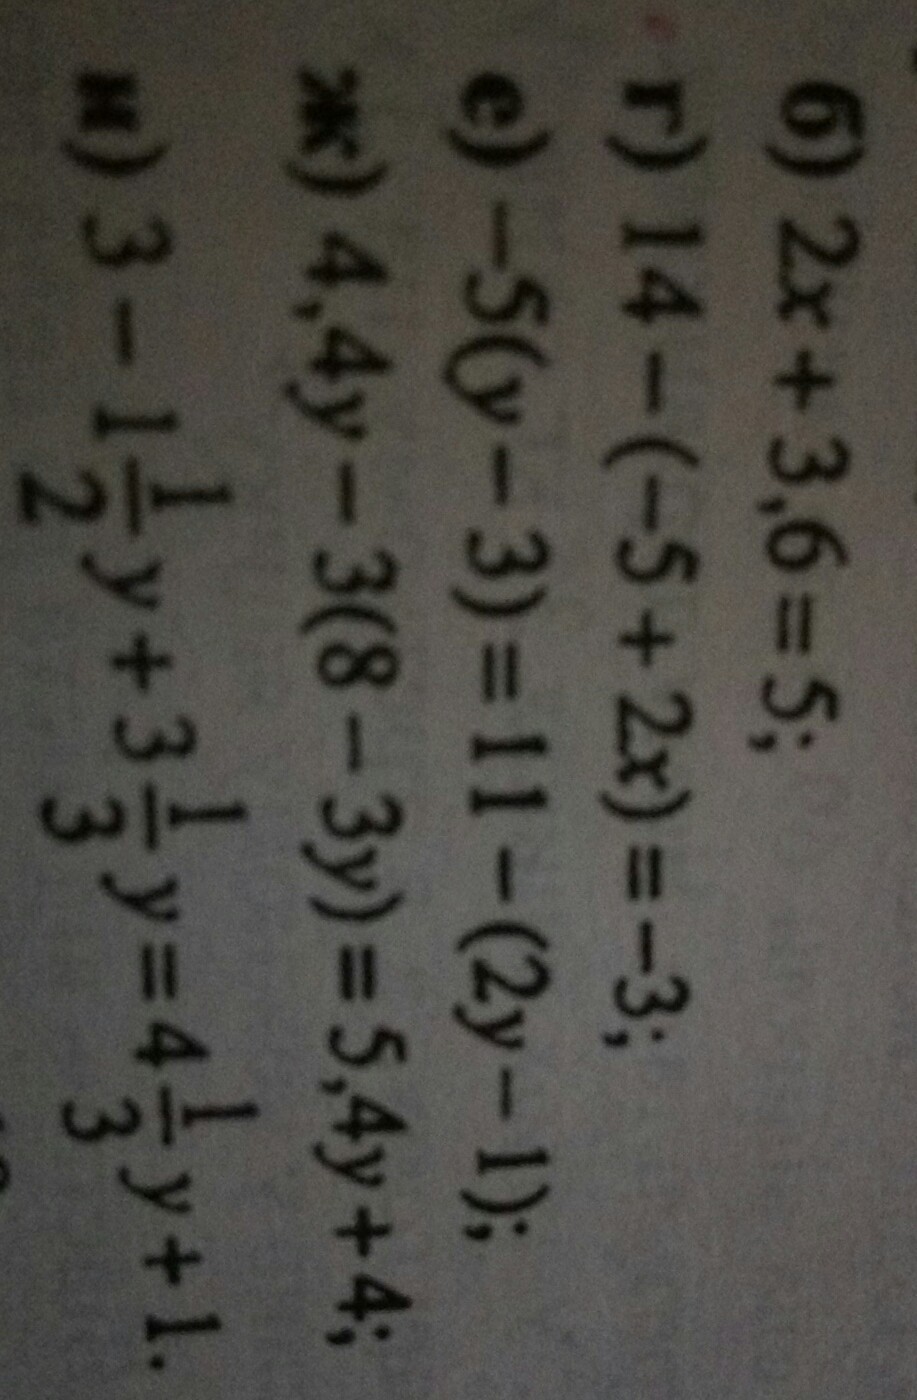 б) 2x + 3,6 = 5;
г) 14 − (−5 + 2x) = −3;
е) −5(y − 3) = 11 − (2y − 1);
ж) 4,4y − 3(8 − 3y) = 5,4y + 4;
и) 3 − 1 1/2 y + 3 1/3 y = 4 1/3 y + 1.